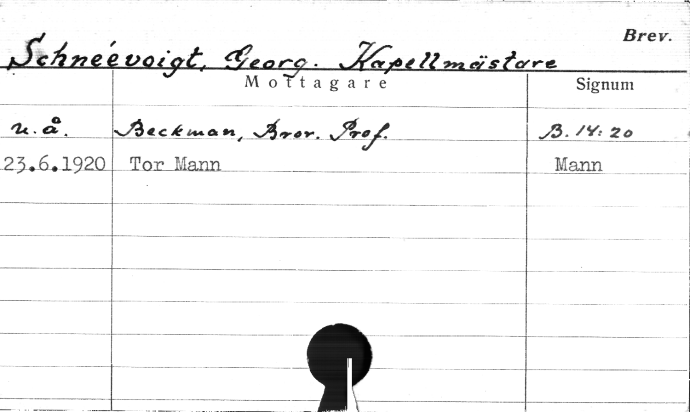 Brev.
Schnéevoigt, Georg. Kapellmästare
Mottagare Signum
u.å. Beckman, Bror. Prof. B. 14: 20
23.6.1920 Tor Mann Mann